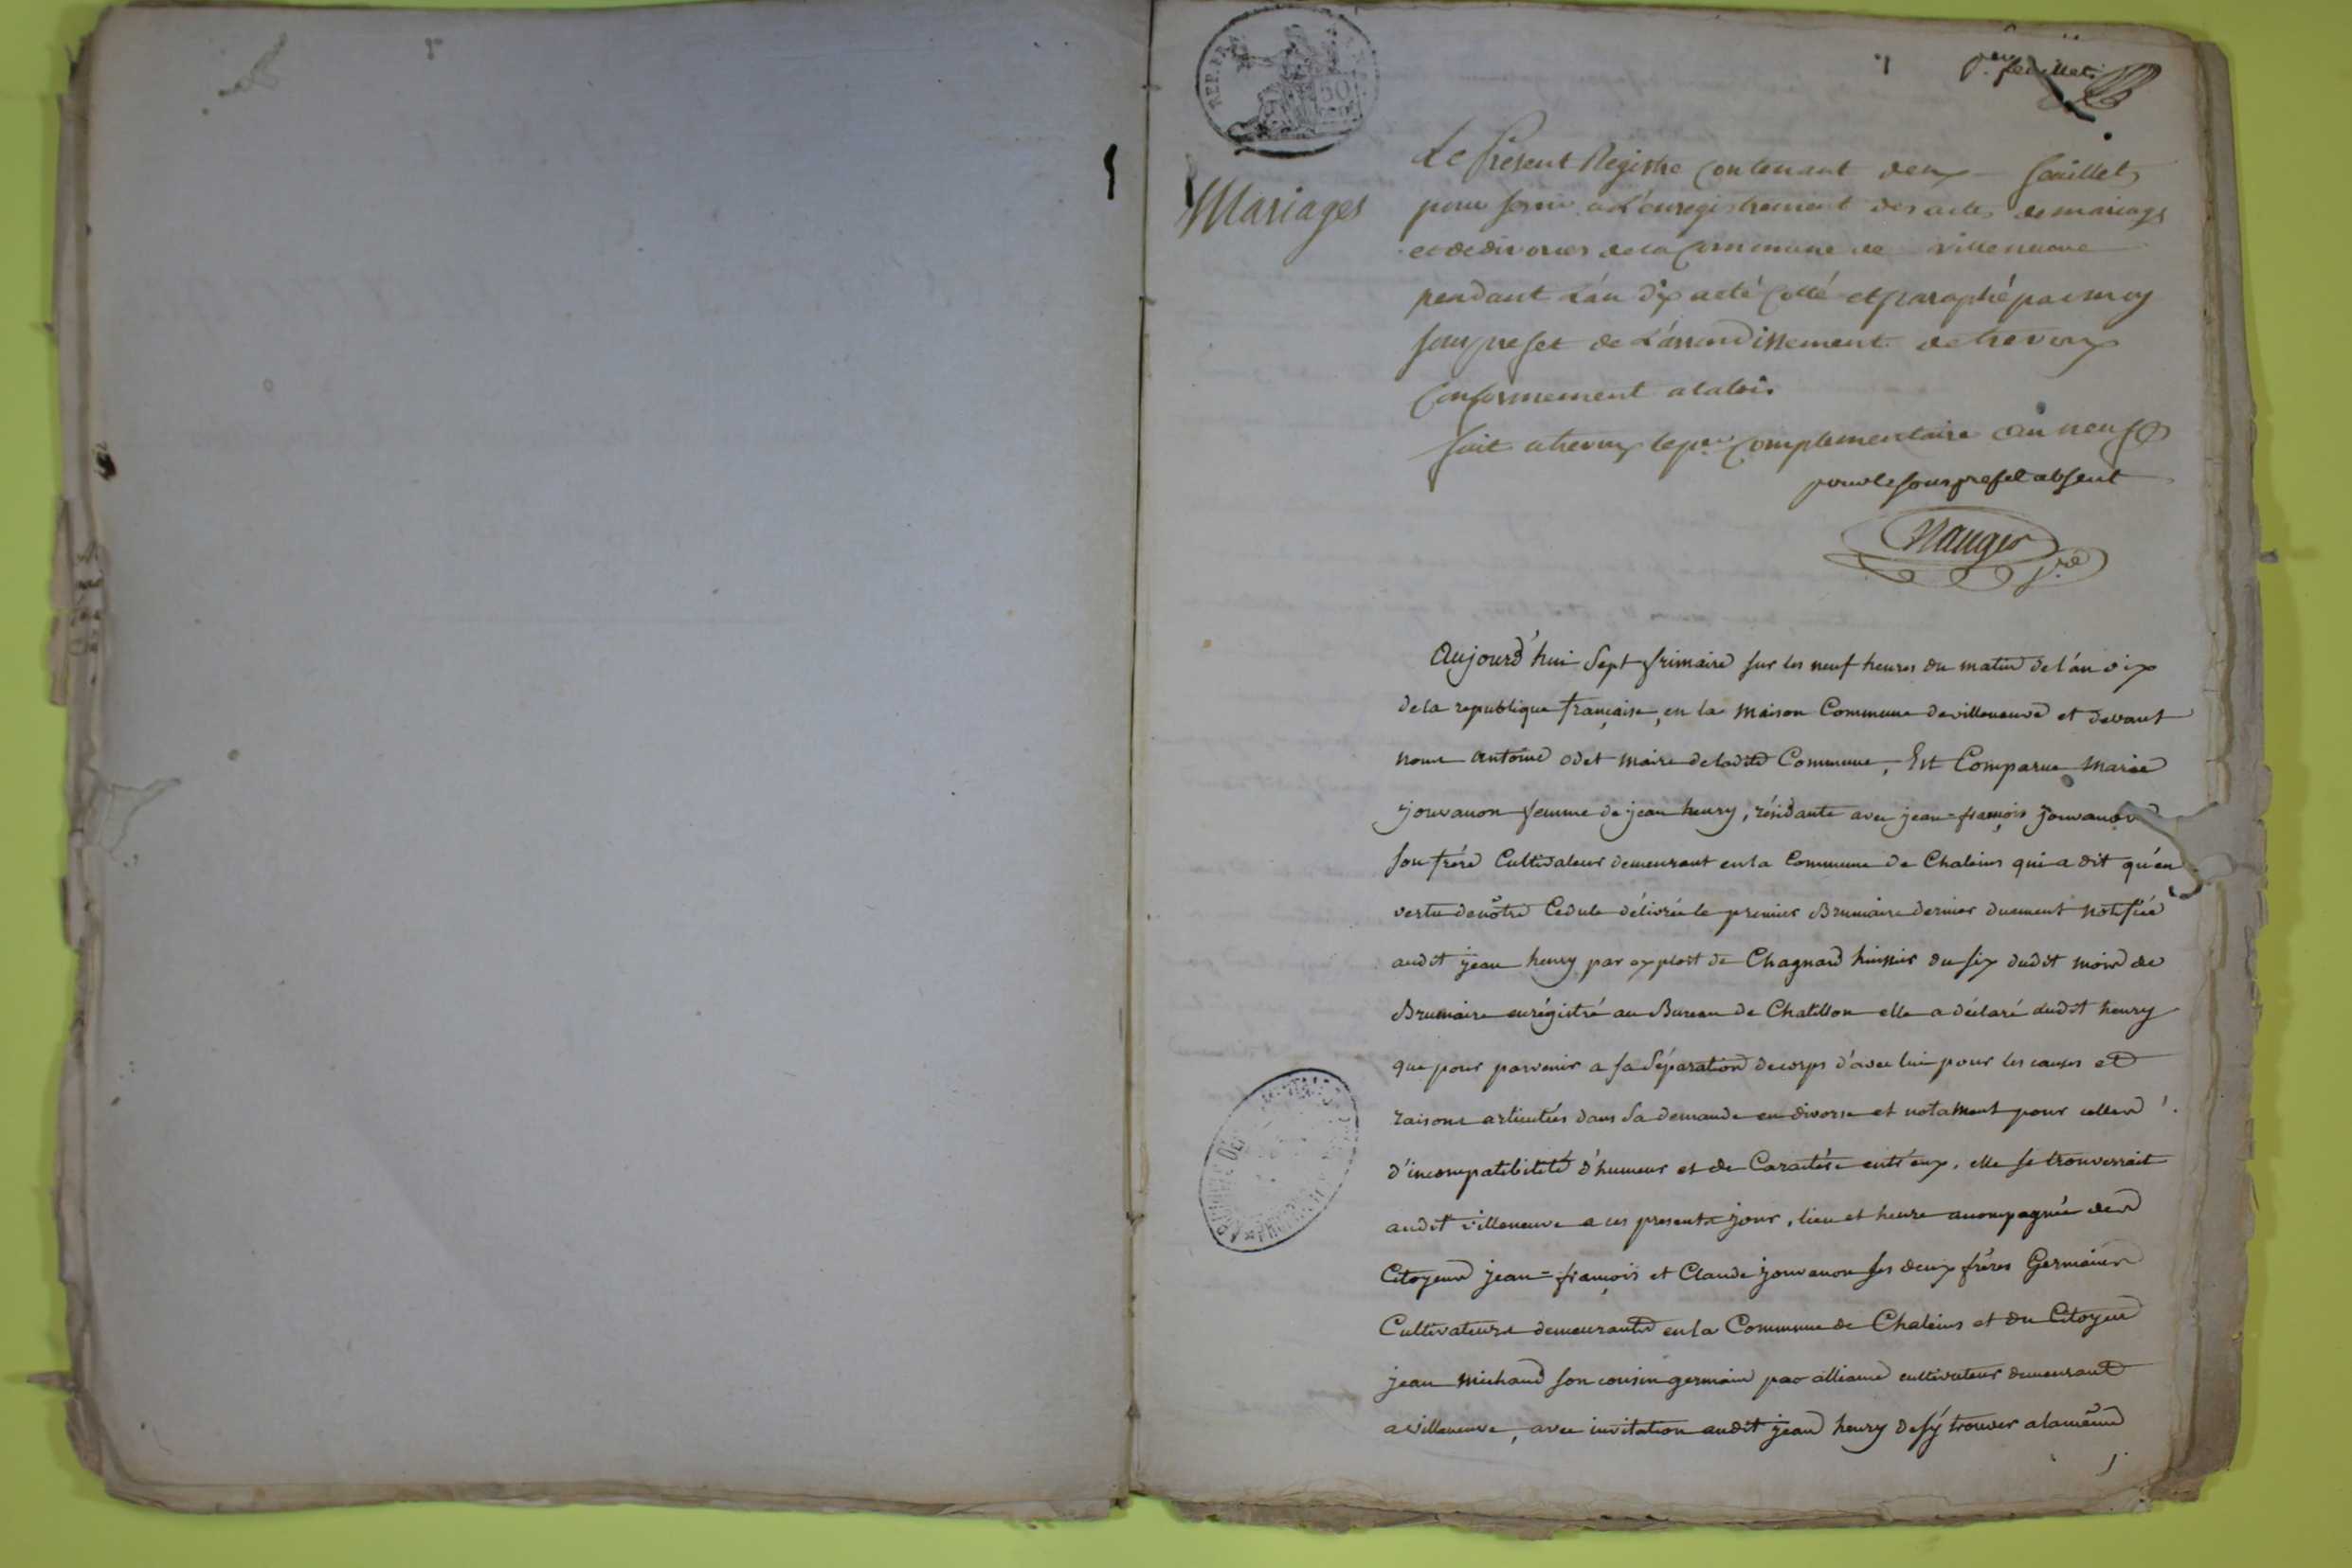 1er feuillet
REP. FRA
50
Mariages
Le present Registre contenant deux feuillets
pour servir a L'enregistrement des actes de mariages
et de divorces de la Commune de villeneuve
pendant L'an dix a eté Cotté et paraphé par moy
sous prefet de L'arrondissement de trevoux
Conformement a la loi.
fait a trevoux le per complementaire an neuf
pour le sous prefet absent
Nauger
sre
Aujourd'hui Sept frimaire sur les neuf heures du matin de l'an dix
de la republique française, en la Maison Commune de villeneuve et devant
nous antoine odet maire de ladite Commune, Est Comparue Marie
jouvanon femme de jean henry, résidante avec jean=françois jouvanon
son frére Cultivateur demeurant en la Commune de Chaleins qui a dit qu'en
vertu de nôtre Cedule délivrée le premier Brumaire dernier duement notifiée
audit jean henry par exploit de Chagnard huissier du six dudit mois de
Brumaire enrégistré au Bureau de Chatillon elle a déclaré audit henry
que pour parvenir a sa Séparation de corps d'avec lui pour les causes et
raisons articulées dans sa demande en divorse et notament pour celles
d'incompatibilité d'humeur et de Caractére entr'eux, elle se trouverrait
audit villeneuve a ces presents jour, lieu et heure acompagnée des
Citoyens jean=françois et Claude jouvanon ses deux fréres Germains
Cultivateurs demeurants en la Commune de Chaleins et du Citoyen
jean Michaud son cousin germain par alliance cultivateur demeurant
a villeneuve, avec invitation audit jean henry de s'y trouver a la même